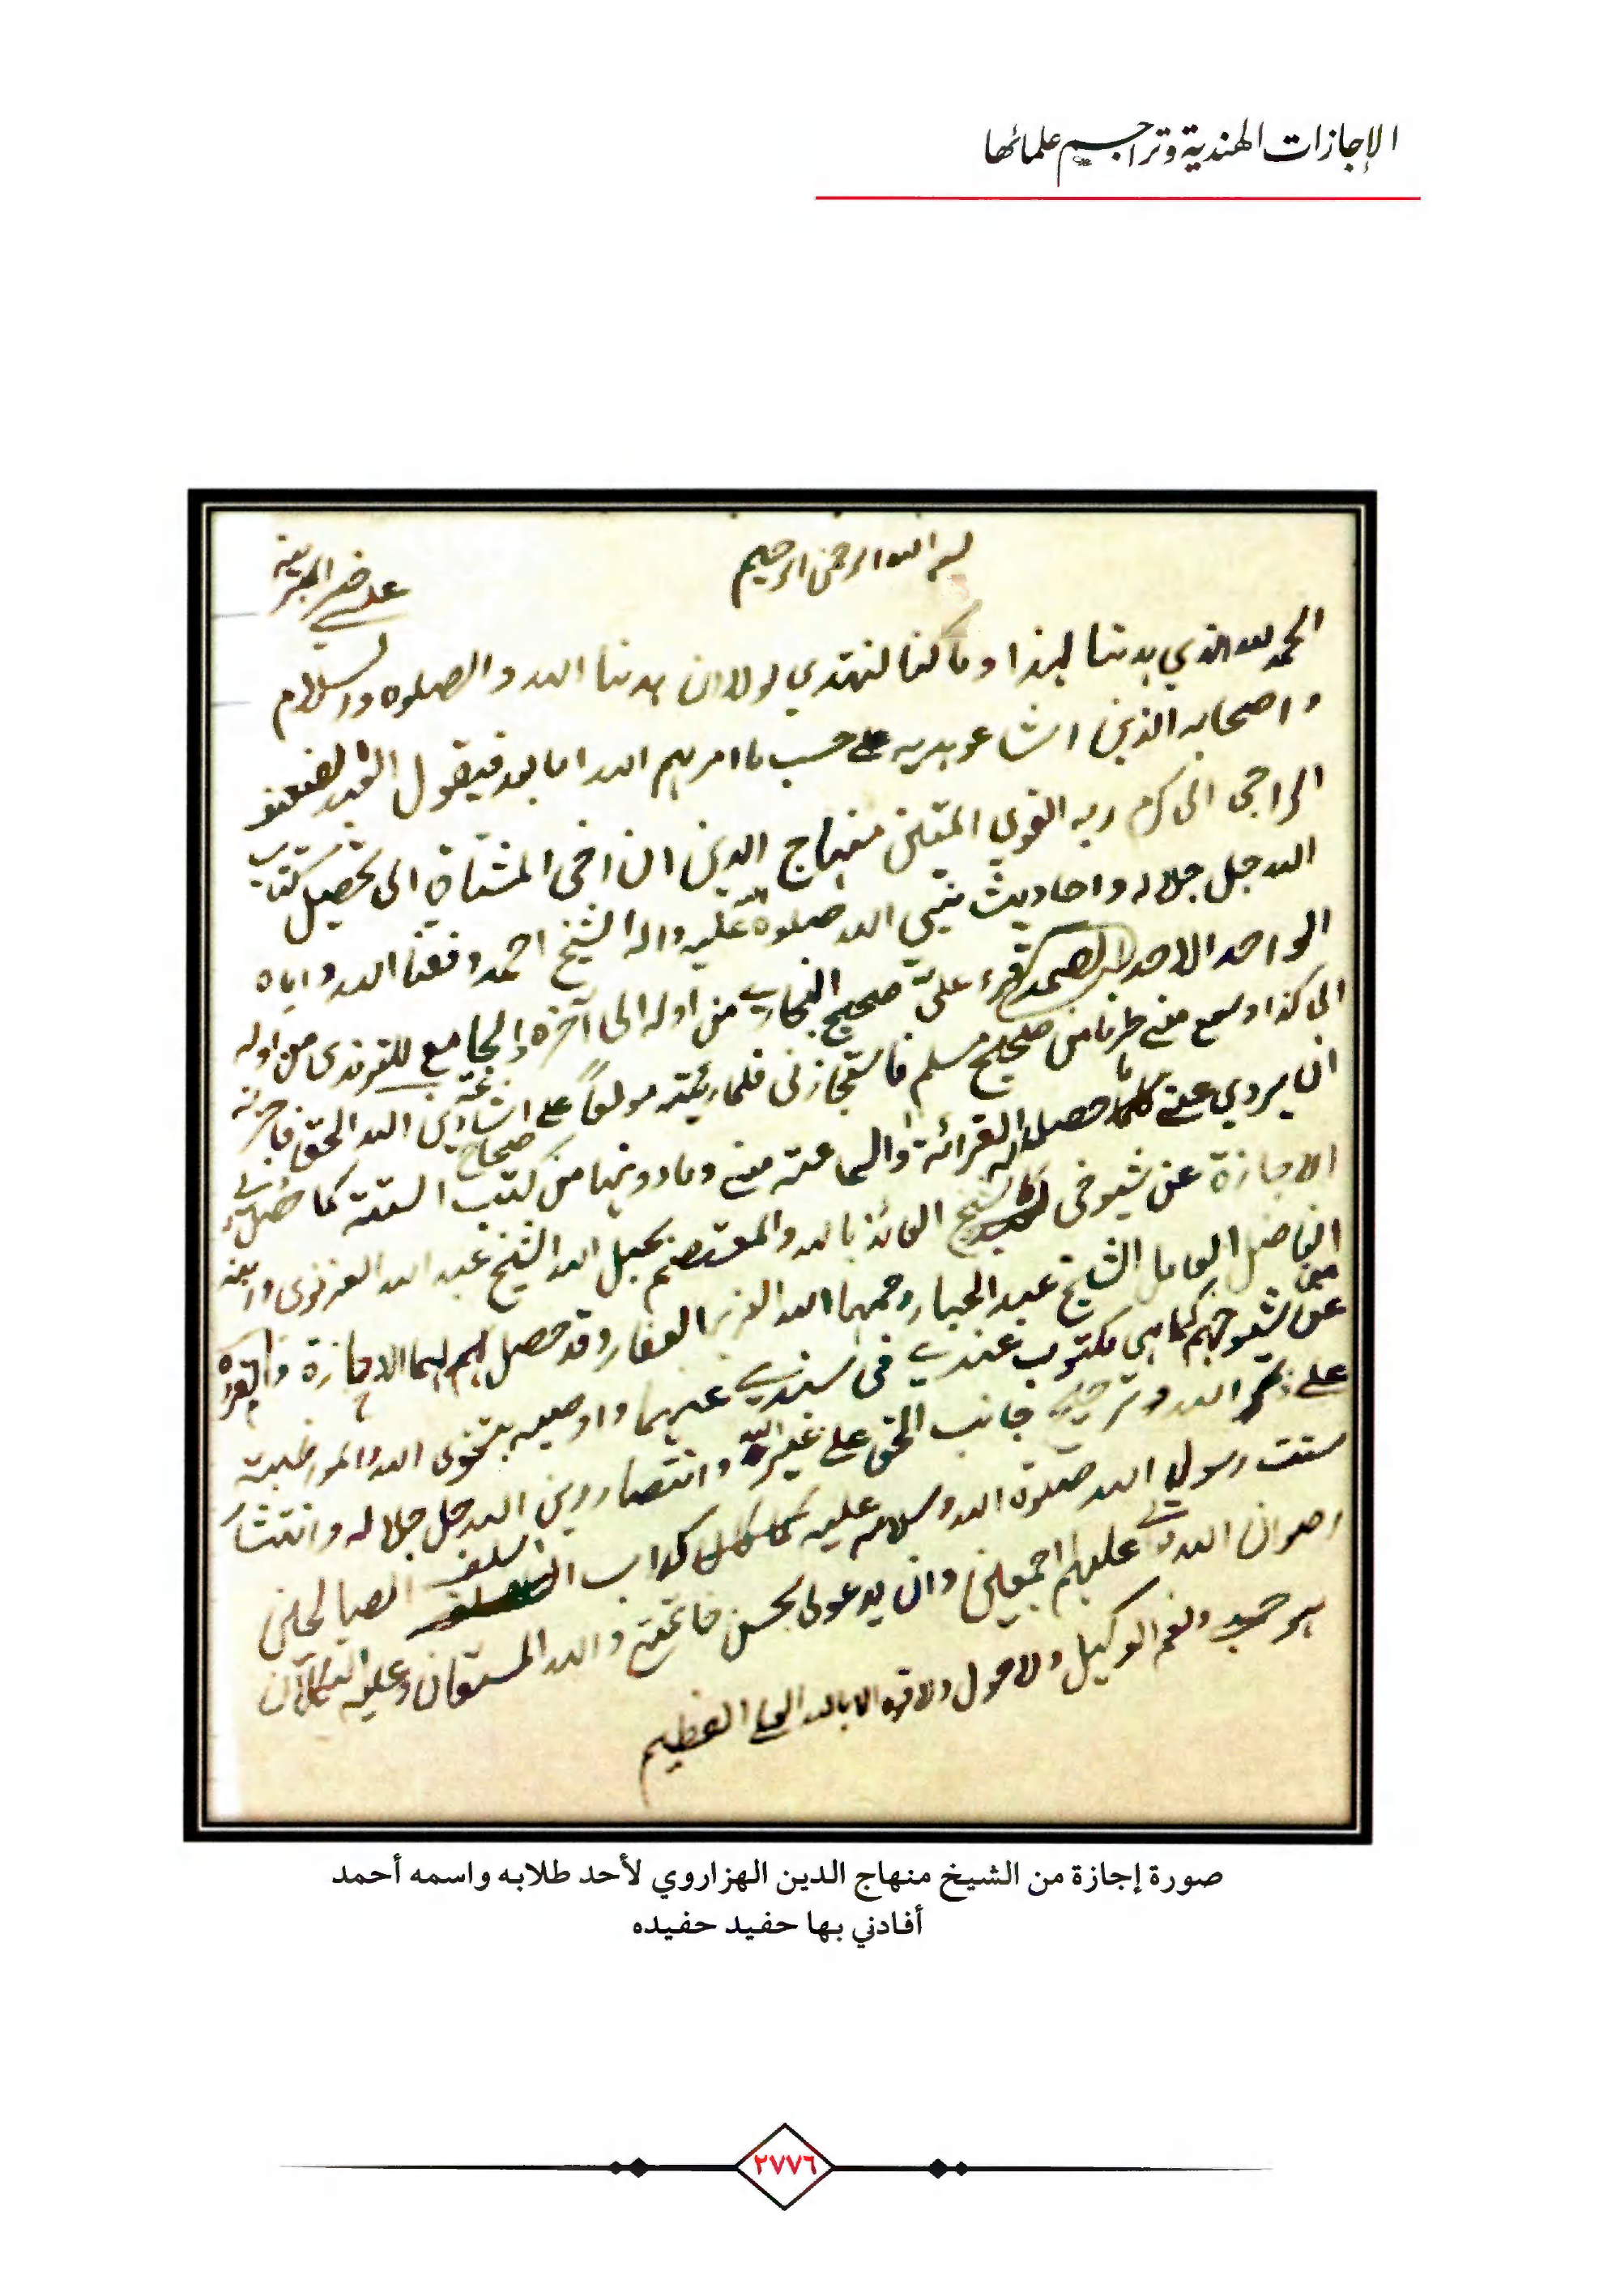 الإجازات الهندية وتراجم علمائها
بسم الله الرحمن الرحيم
على خير البرية
الحمد لله الذي هدينا لهذا وما كنا لنهتدي لولا ان هدينا الله والصلوة والسلام
واصحابه الذين اشاعو هديه على حسب ما امرهم الله اما بعد فيقول العبد الضعيف
الراجي الى كرم ربه القوي المتين منهاج الدين ان اخى المشتاق الى تحصيل كتاب
الله جل جلاله واحاديث نبي الله صلوة الله عليه واله الشيخ احمد وفقنا الله واياه
الواحد الاحد الصمد قرء علىّ صحيح البخاري من اوله الى آخره والجامع للترمذى من اوله
الى كذا وسمع مني طرفا من صحيح مسلم فاستجازنى فلما رئيته مولعاً على اشاعة دين الله الحق فاجزته
ان يروي عني ما حصل له القرائة والسماعة مني وما دونها من كتب صحاح الستة كما حصل لي
الاجازة عن شيوخى الشيخ العائذ بالله والمعتصم بحبل الله الشيخ عبد الله الغزنوى وابنه
الفاضل الكامل الشيخ عبد الجبار رحمهما الله العزيز الغفار وقد حصل لهما الاجازة والقراءة
عن شيوخهم كما هي مكتوب عندي فى سندي عنهما واوصيه بتقوى الله والمواظبة
على ذكر الله وترجيح جانب الحق على غيره وانتصار دين الله جل جلاله وانتشار
سنت رسول الله صلوة الله وسلامه عليه كما كان داب السلف الصالحين
رضوان الله تعالى عليهم اجمعين وان يدعو لى بحسن خاتمتي والله المستعان وعليه التكلان
هو حسبي ونعم الوكيل ولا حول ولا قوة الا بالله العلي العظيم
صورة إجازة من الشيخ منهاج الدين الهزاروي لأحد طلابه واسمه أحمد
أفادني بها حفيد حفيده
٢٧٧٦